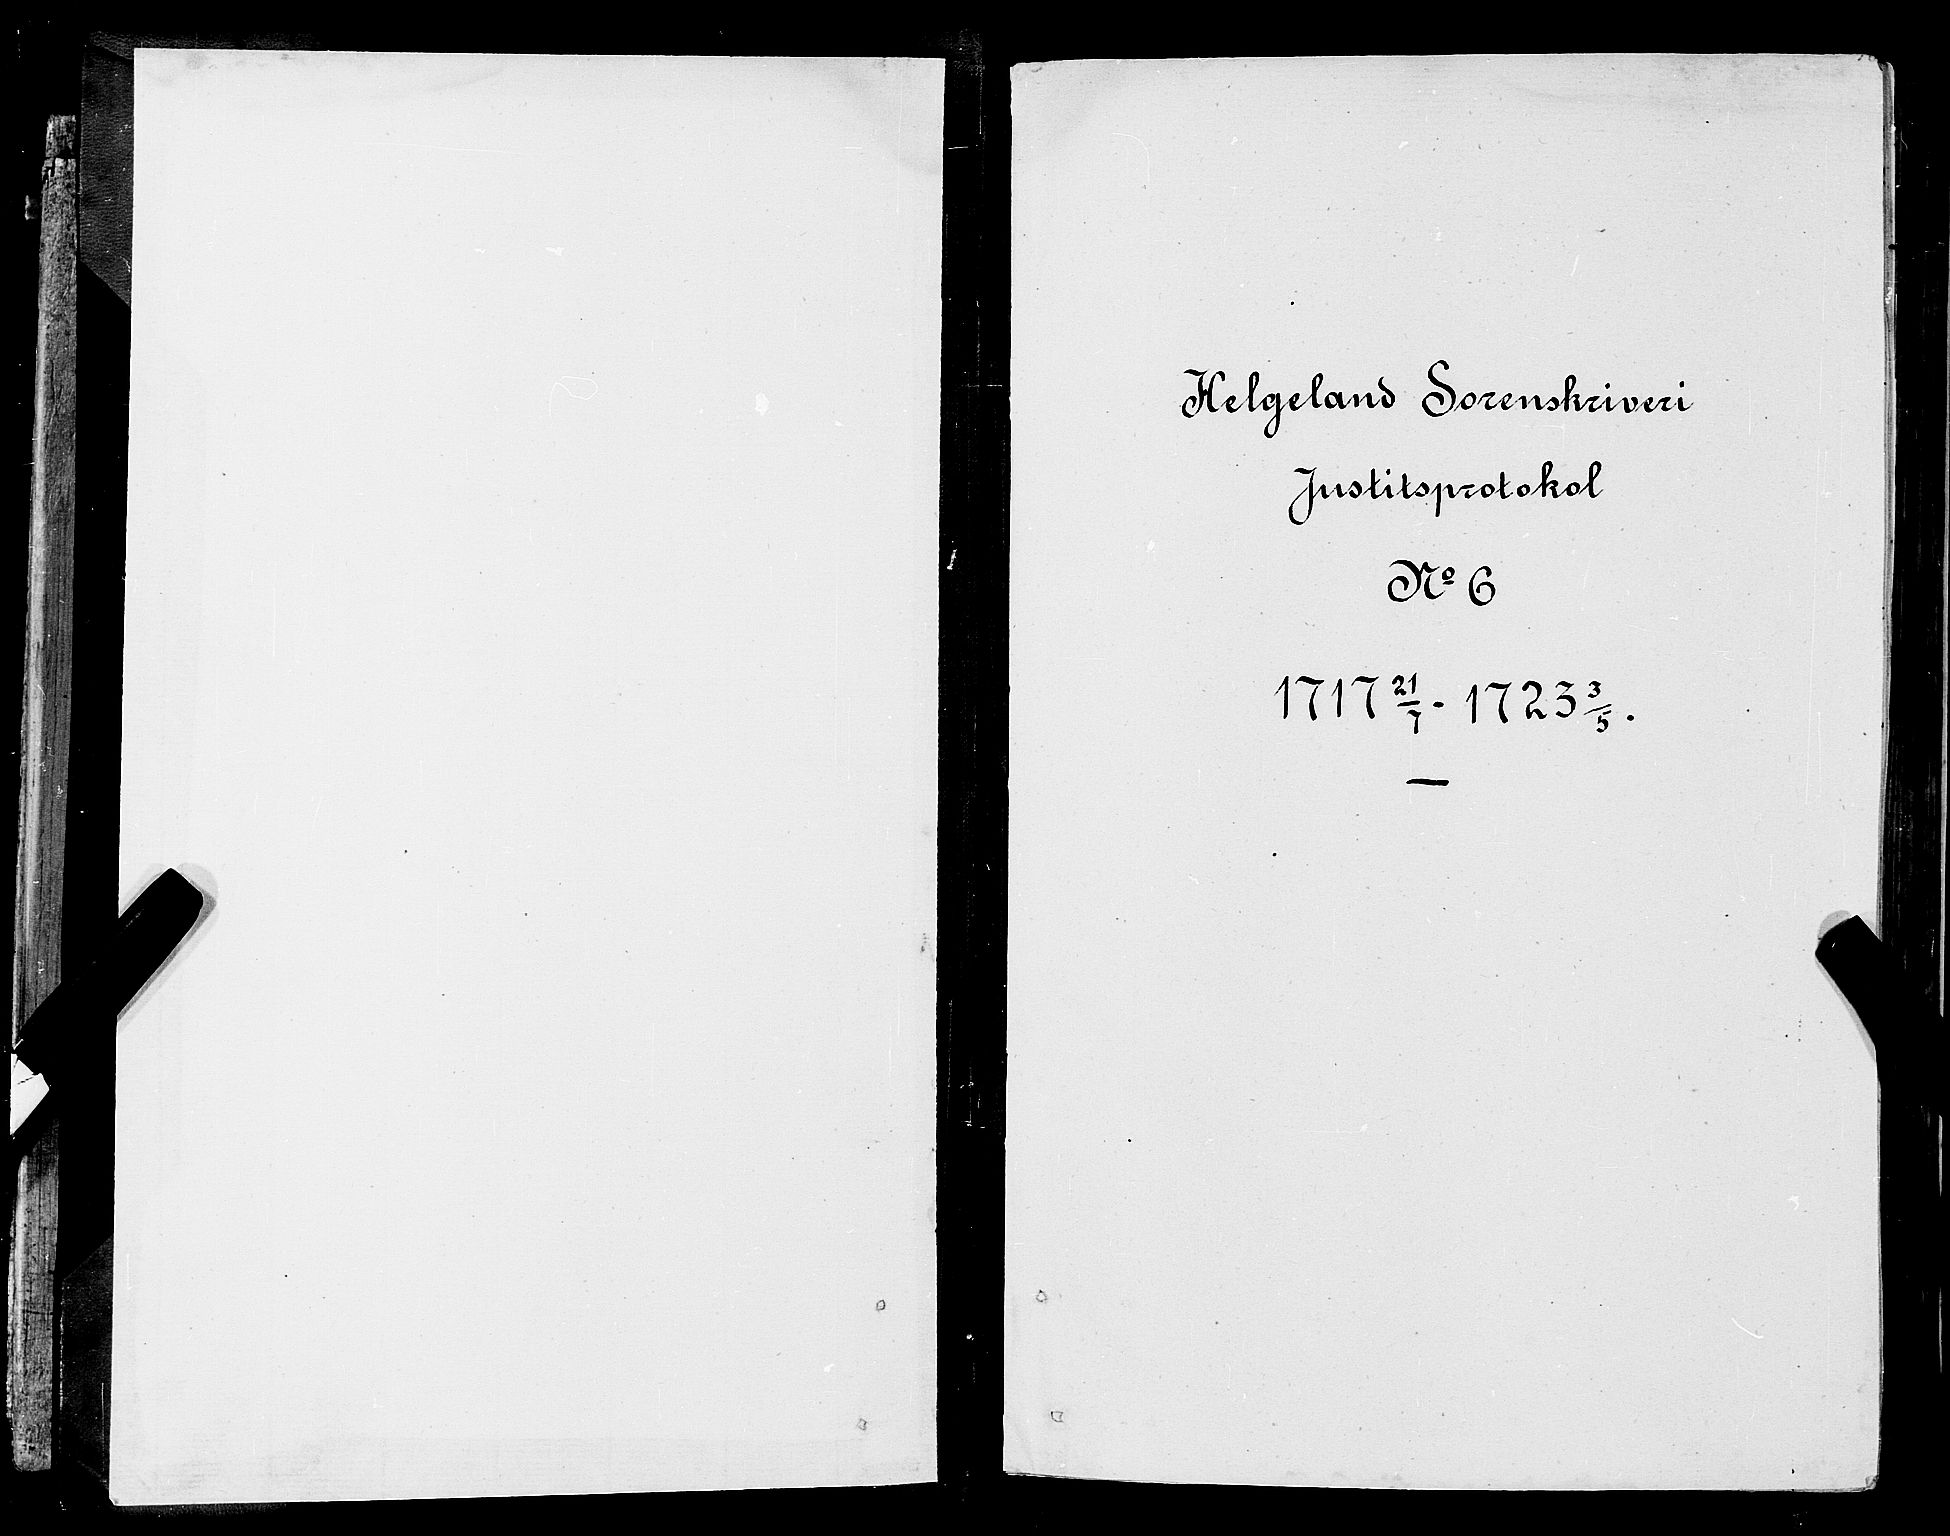 Helgeland Sorenskriveri
Justitsprotokol
Nº 6
1717 21/7 - 1723 3/5.